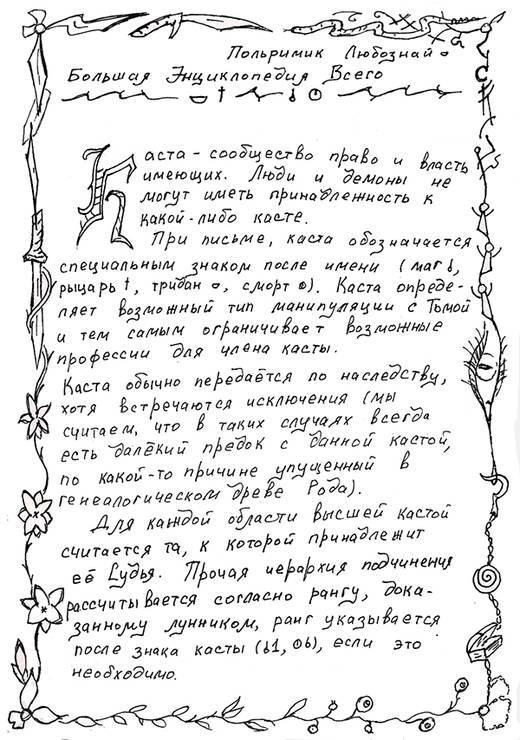 Польримик Любознай
Большая Энциклопедия Всего
Каста - сообщество право и власть
имеющих. Люди и демоны не
могут иметь принадлежность к
какой-либо касте.
При письме, каста обозначается
специальным знаком после имени (маг, рыцарь †, тридан, сморт). Каста опреде-
ляет возможный тип манипуляции с Тьмой
и тем самым ограничивает возможные
профессии для члена касты.
Каста обычно передаётся по наследству,
хотя встречаются исключения (мы
считаем, что в таких случаях всегда
есть далёкий предок с данной кастой,
по какой-то причине упущенный в
генеалогическом древе Рода).
Для каждой области высшей кастой
считается та, к которой принадлежит
её Судья. Прочая иерархия подчинения
рассчитывается согласно рангу, дока-
занному лунником, ранг указывается
после знака касты (♁1, ⊙6), если это
необходимо.